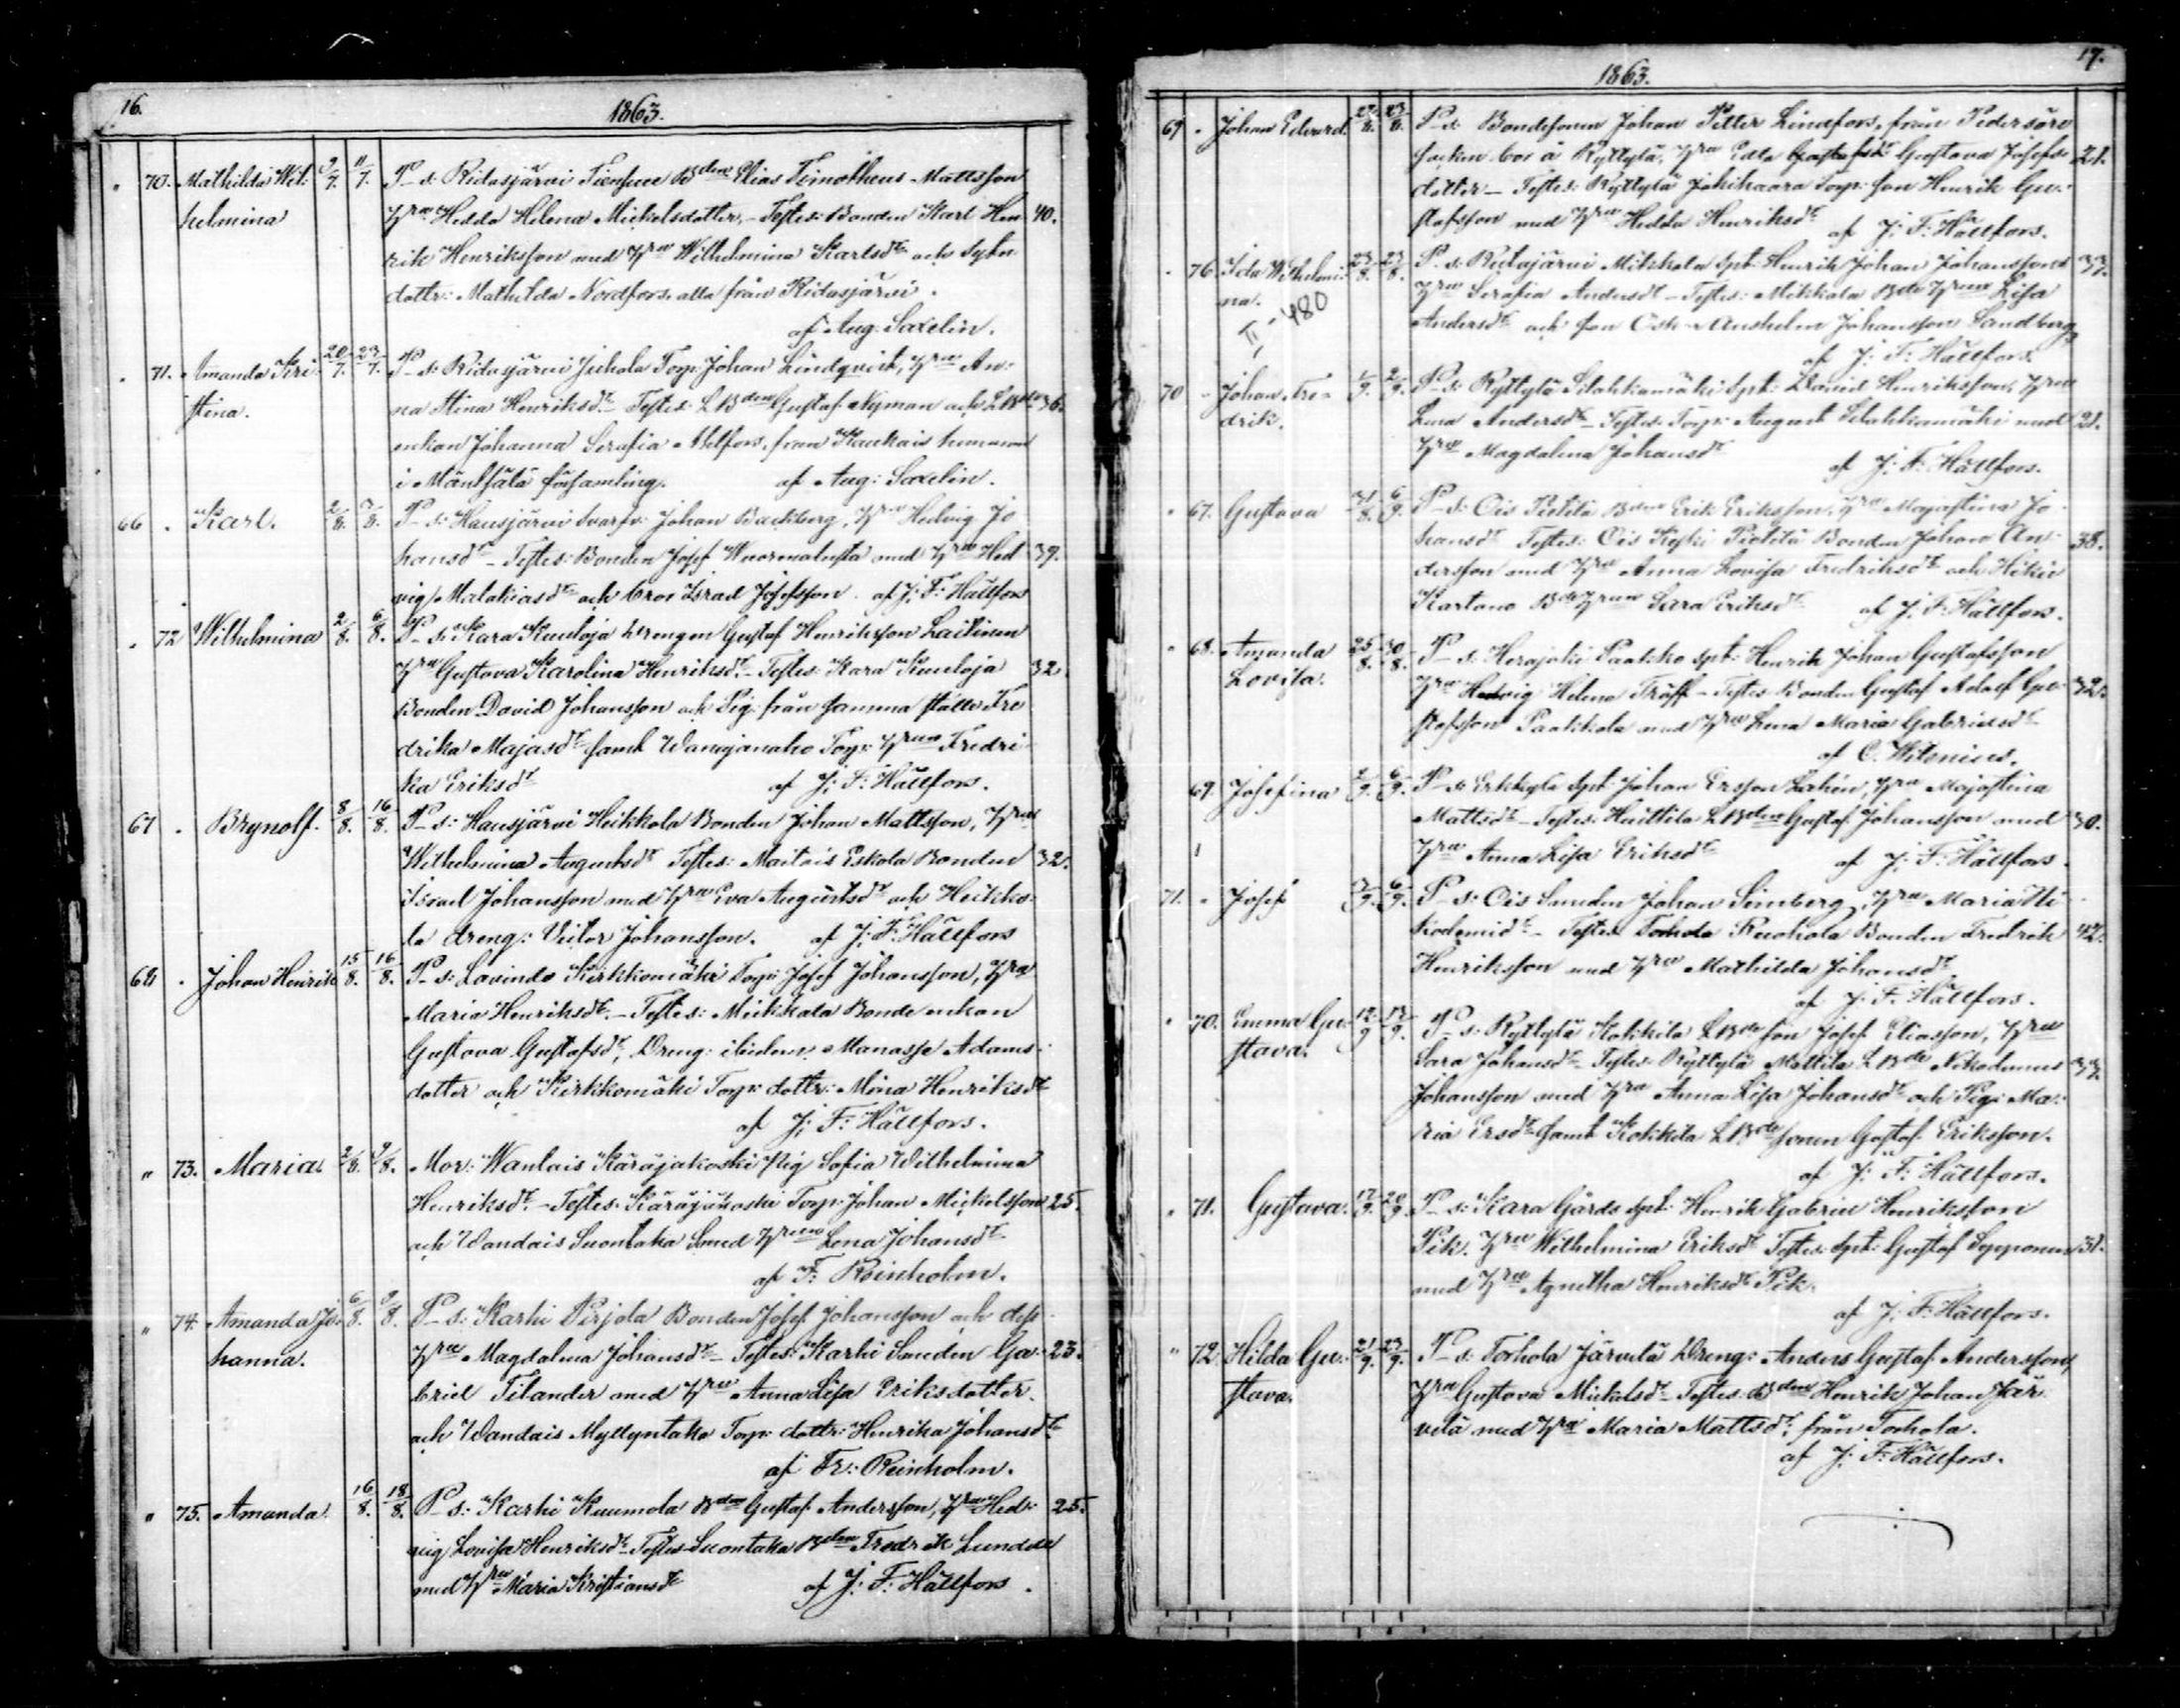 16.
1863.
" 70. Mathilda Wil: 9/7. 11/7. P-s: Ridasjärvi Bden Elias Timotheus Mattsson
helmina Hru Hedda Helena Mickelsdotter. - Testes: Bonden Karl Hen 40.
rik Henriksson med Hru Wilhelmina Karlsdr och
dottr: Mathilda Nordfors alla från Ridasjärvi.
af Aug. Saxelin.
" 71. Amanda Kri 20/7. 23/7. P-s: Ridasjärvi Juhola Torp: Johan Lindqvist, Hru An:
stina. na Stina Henriksdr Testes: LBden Gustaf Nyman och LBde 36.
enkan Johanna Serafia Ahlfors, från Kaukais
i Mäntsälä församling. af Aug: Saxelin.
66 " Karl. 2/8. 7/8. P-s: Hausjärvi Johan Backberg, Hru Hedvig Jo
hansdr - Testes: Bonden Josef med Hru Hed 39.
vig Malakiasdr och bror Israel Josefsson. af J: F: Hällfors
" 72 Wilhelmina 2/8. 6/8. P-s: Kara Kuuloja Drengen Gustaf Henriksson Laitinen
Hru Gustava Karolina Henriksdr - Testes: Kara Kuuloja 32.
Bonden David Johansson och Pig: från samma ställe Fre
drika Majasdr samt Torp: Hrun Fredri
ka Eriksdr af J: F: Hällfors.
67 " Brynolf. 8/8. 16/8. P-s: Hausjärvi Heikkola Bonden Johan Mattsson, Hru
Wilhelmina Augustsdr Testes: Eskola Bonden 32.
Israel Johansson med Hru Eva Augustsdr och Heikko
la dreng: Victor Johansson. af J: F: Hällfors
68 " Johan Henrik 15/8. 16/8. P-s: Lavinto Kirkkomäki Torp: Josef Johansson, Hru
Maria Henriksdr. - Testes: Mikkala Bonde enkan
Gustava Gustafsdr, Dreng: ibidem Manasse Adams-
dotter och Kirkkomäki Torp: dottr: Mina Henriksdr
af J: F: Hällfors.
" 73. Maria 2/8. 9/8. Mor: Wantais Käräjäkoski Pig Sofia Wilhelmina
Henriksdr. - Testes: Käräjäkoski Torp: Johan Mickelsson 25.
och Wandais Suontaka Smed Hrun Lena Johansdr
af F: Reinholm.
" 74. Amanda Jo: 6/8. 9/8. P-s: Karhi Pirjola Bonden Josef Johansson och dess
hanna. Hru Magdalena Johansdr - Testes: Karhi Smeden Ga- 23.
briel Tilander med Hru Anna Lisa Eriksdotter
och Wandais Myllyntaka Torp: dottr: Henrika Johansdr
af Fr: Reinholm.
" 75. Amanda 16/8. 18/8. P-s: Karhi Kuumola Bden Gustaf Andersson, Hru Hed- 25.
vig Lovisa Henriksdr Testes Suontaka Bden Fredrik
med Hru Maria Kristiansdr af J: F: Hällfors.
17.
1863.
69 " Johan Edvard 22/8. 23/8. P-s: Bondesonen Johan Petter Lindfors, från Pedersöre
socken bor å Ryttylä, Hru Edla Gustava Josefs- 21.
dotter - Testes: Ryttylä Torp: son Henrik Gu-
stafsson med Hru Hedda Henriksdr af J: F: Hällfors.
" 76 Ida Wilhelmi 23/8. 23/8. P-s: Ridasjärvi Mikkola Spt: Henrik Johan Johansson 33.
na. Hru Serafia Andersdr - Testes: Mikkola Bde Hrun Lisa
II-480 Andersdr och son Osk Anshelm Johansson Sandberg
af J: F: Hällfors.
70 " Johan Fre- 1/9. 2/9. P-s: Ryttylä Silakkamäki Spt: Daniel Henriksson, Hru
drik. Lena Andersdr - Testes: Torp: August Silakkamäki med 21.
Hru Magdalena Johansdr
af J: F: Hällfors.
" 67. Gustava 31/8. 6/9. P-s: Ois Bden Erik Eriksson, Hru Majastina Jo
hansdr Testes: Ois Bonden Johan An- 38.
dersson med Hru Anna Lovisa Fredriksdr och Hikiä
Kartano Bde Hrun Sara Eriksdr af J: F: Hällfors.
" 68. Amanda 25/8. 30/8. P-s: Herajoki Paakko Spt: Henrik Johan Gustafsson
Lovisa. Hru Hedvig Helena Träff - Testes Bonden Gustaf Adolf Gu- 32.
stafsson Paakkola med Hru Lena Maria Gabrielsdr
af C. Witenius.
69. Josefina 2/9. 6/9. P-s: Erkkylä Spt: Johan Ersson Lahin, Hru Majastina
Mattsdr - Testes: LBden Gustaf Johansson med 30.
Hru Anna Lisa Eriksdr af J: F: Hällfors.
71. " Josef 3/9. 6/9. P-s: Ois Smeden Johan Simberg, Hru Maria Ni
kodemidr - Testes: Ruohola Bonden Fredrik 42.
Henriksson med Hru Mathilda Johansdr
af J: F: Hällfors.
" 70. Emma Gu- 12/9 13/9. P-s: Ryttylä Kokkila LBde son Josef Eliasson, Hru
stava. Sara Johansdr - Testes: Ryttylä Mattila LBde Nikodemus 33.
Johansson med Hru Anna Lisa Johansdr och Pig: Ma-
ria Ersdr samt Kokkila LBde sonen Gustaf Eriksson.
af J: F: Hällfors.
" 71. Gustava. 17/9. 20/9. P-s: Kara Gårds Spt: Henrik Gabriel Henriksson
Pik. Hru Wilhelmina Eriksdr Testes: Spt: Gustaf Sepponen 31.
med Hru Agnetha Henriksdr Pik.
af J: F: Hällfors.
" 72. Hilda Gu- 21/9. 27/9. P-s: Torhola Järvelä Dreng: Anders Gustaf Andersson,
stava. Hru Gustava Mickelsdr - Testes: Bden Henrik Johan Jär
velä med Hru Maria Mattsdr, från Torhola.
af J: F: Hällfors.